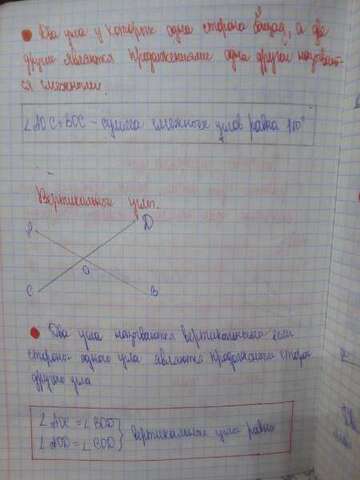 Два угла у которых одна сторона общая, а две
другие являются продолжениями одна другой называют
ся смежными.
∠AOC+BOC - сумма смежных углов равна 180°
Вертикальные углы.
A
D
O
C
B
Два угла называются вертикальными если
стороны одного угла являются продолжением сторон
другого угла
∠AOC = ∠BOD
∠AOD = ∠BOD } вертикальные углы равны